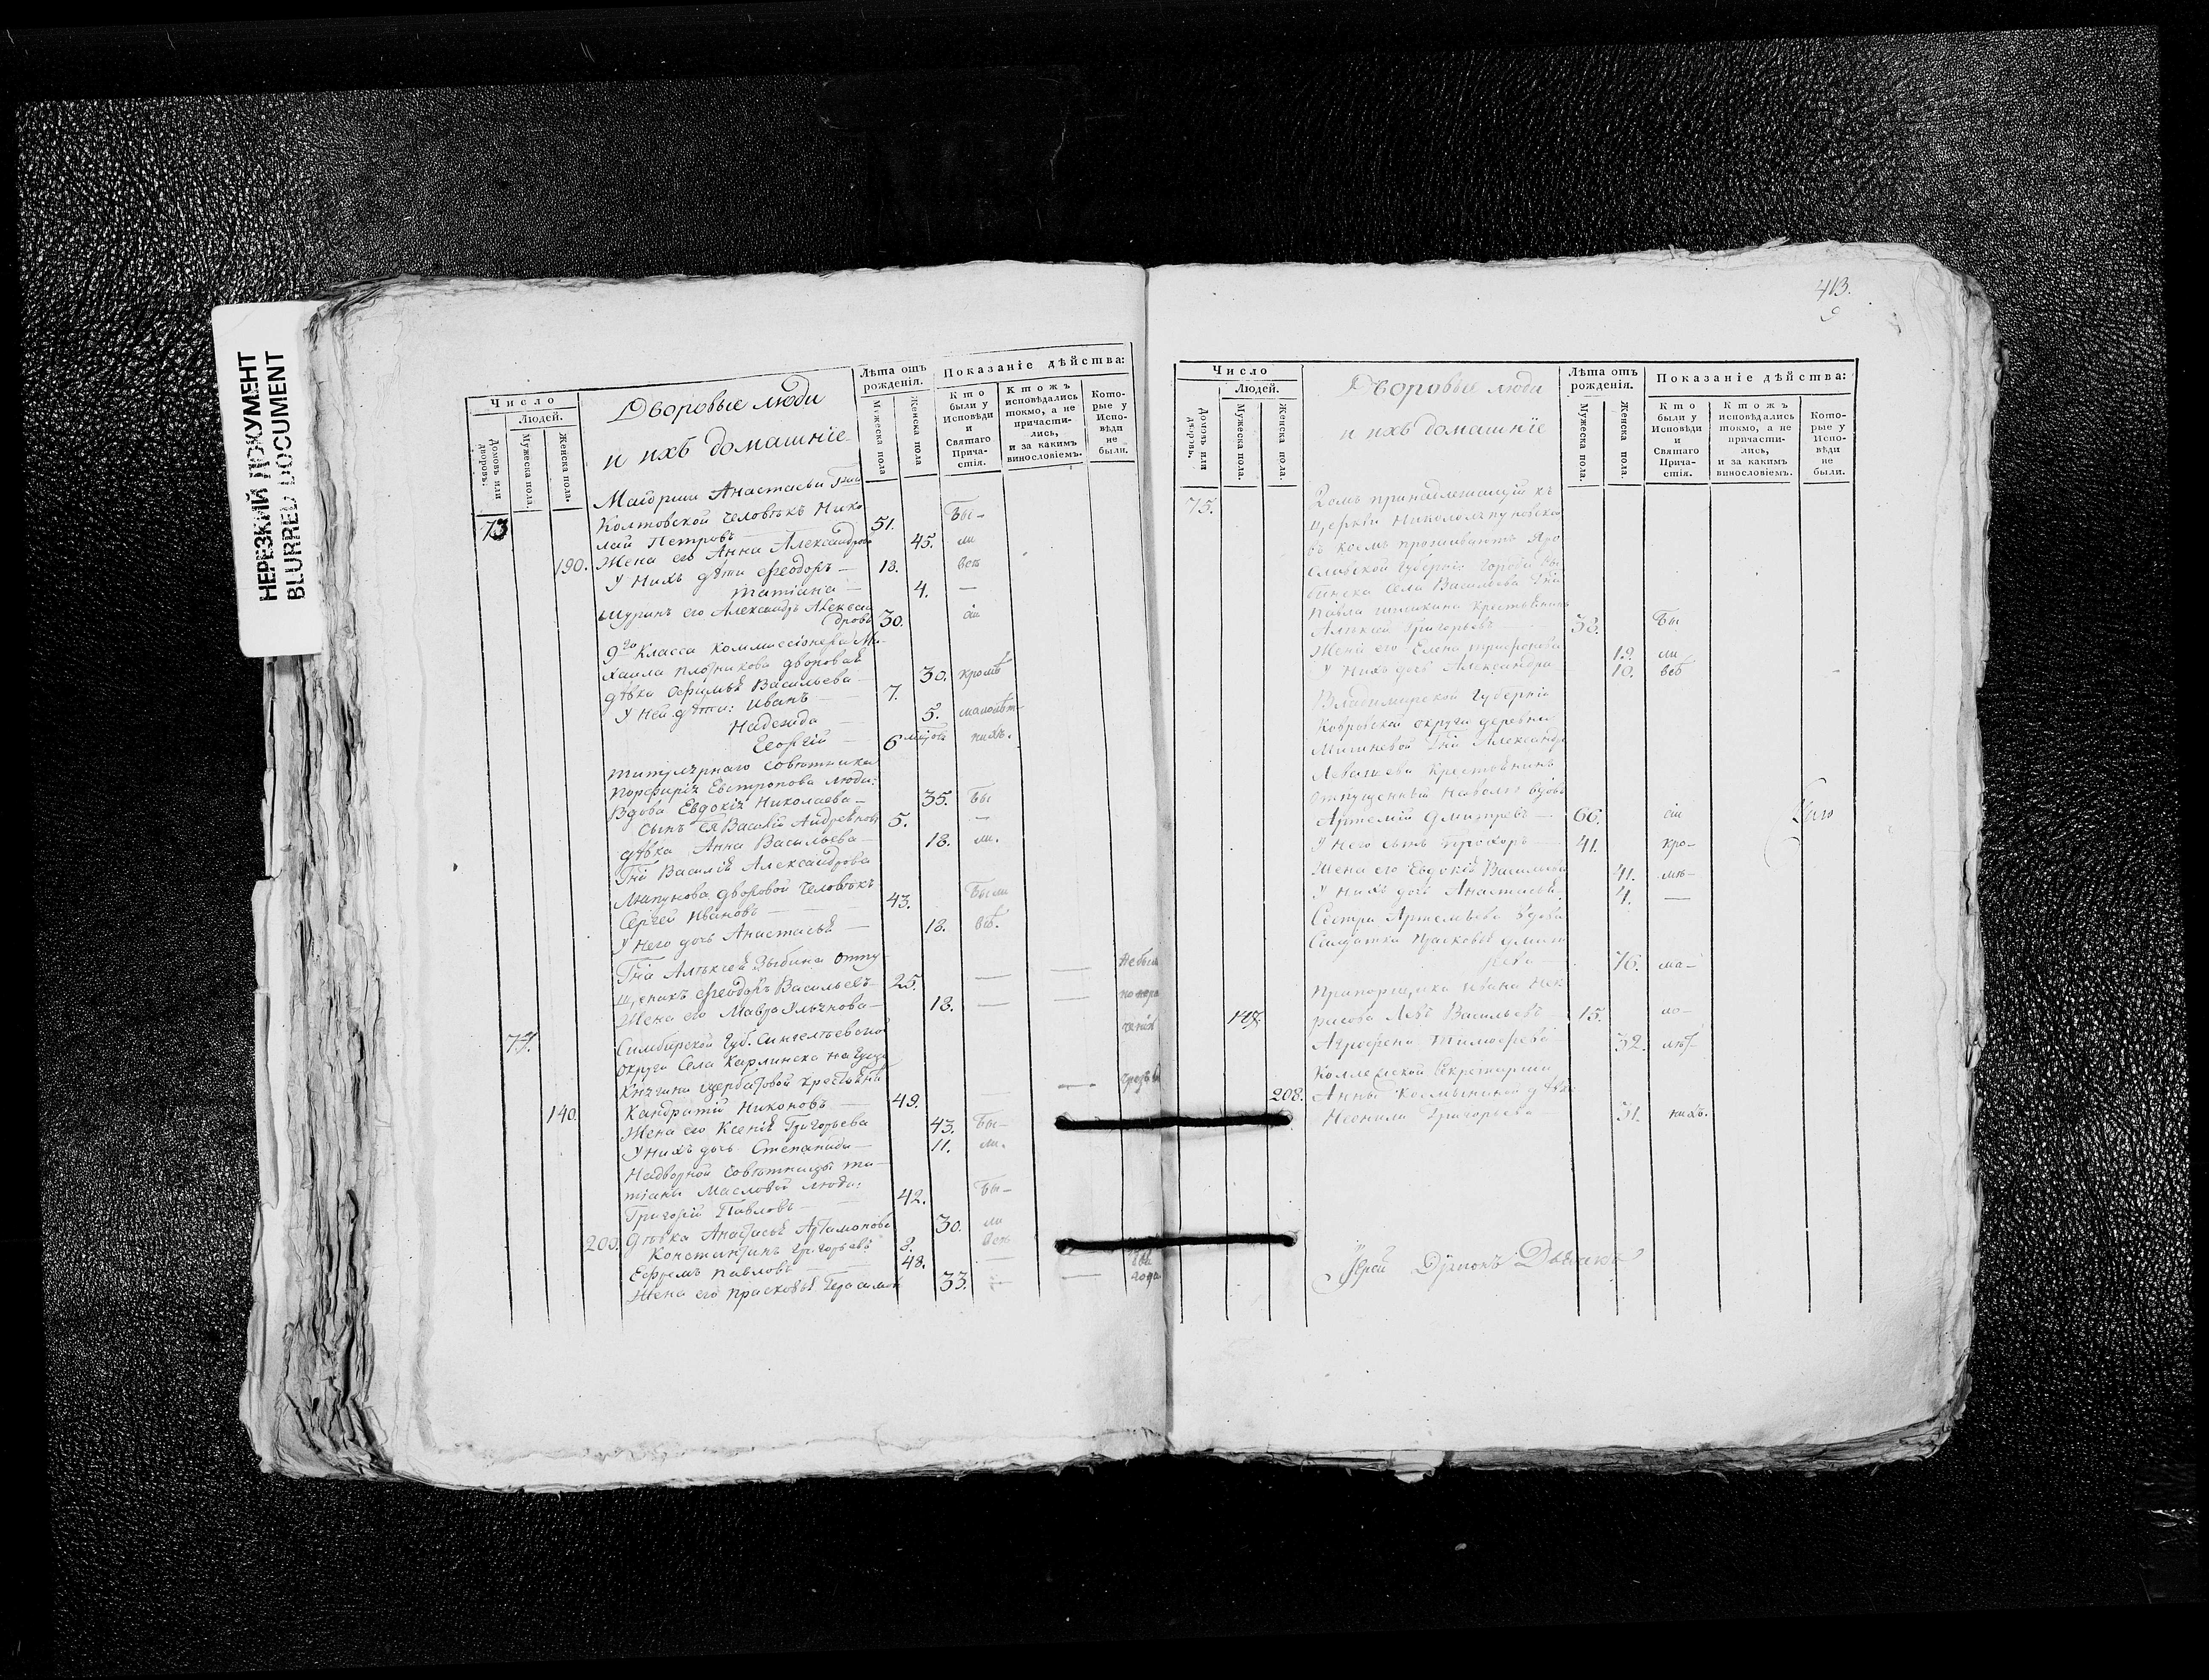 НЕРЕЗКИЙ ДОКУМЕНТ
BLURRED DOCUMENT
Число
Людей.
Домовъ или дворовъ.
Мужеска пола.
Женска пола.
Дворовые люди
и ихъ домашніе
Лѣта отъ рожденія.
Мужеска пола
Женска пола
Показаніе дѣйства:
Кто были у Исповѣди и Святаго Причастія.
Ктожъ исповѣдались токмо, а не причастились, и за какимъ винословіемъ.
Которые у Исповѣди не были.
Маіорши Анастасьи
73 Колтовской человѣкъ Нико
лай Петровъ — 51. Бы-
190. Жена его Анна Александрова 45. ли
У нихъ дѣти Феодоръ — 18. всѣ
Татіана — 4. —
Шуринъ его Александръ Алексан
дровъ 30. сіи
9го Класса коммиссіонера Ми-
хаила Плотникова дворовая
дѣвка Офимья Васильева — 30. кромѣ
У ней дѣти: Иванъ — 7.
Надежда — 5. малолѣт-
Георгій — 6 нихъ.
Титулярнаго совѣтника
Порфирія Евстропова люди:
Вдова Евдокія Николаева — 35. Бы
сынъ ея Василій Андреяновъ 5. —
дѣвка Анна Васильева — 18. ли.
Гна Василія Александрова
Ляпунова дворовой человѣкъ
Сергей Ивановъ — 43. Были
У него дочь Анастасья — 18. всѣ.
Гна Алексея Зыбина отпу
щеникъ Феодоръ Васильевъ 25. — — Небыли
Жена его Мавра Ульянова — 18. — —
74. Симбирской Губ. Сингелѣевской
округи Села Карлинска
Княгини Щербатовой крестьянинъ
140. Кандратій Никоновъ — 49.
Жена его Ксенія Григорьева 43. Бы-
У нихъ дочь Степанида — 11. ли.
Надворной совѣтницы Та-
тіаны Масловой люди:
Григорій Павловъ — 42. Бы-
200. Дѣвка Анастасья Артамонова 30. ли
Константинъ Григорьевъ 8. всѣ
Ефремъ Павловъ — 48. —
Жена его Прасковья Герасимов 33. —
413.
9
Число
Людей.
Домовъ или дворовъ.
Мужеска пола.
Женска пола.
Дворовые люди
и ихъ домашніе
Лѣта отъ рожденія.
Мужеска пола.
Женска пола.
Показаніе дѣйства:
Кто были у Исповѣди и Святаго Причастія.
Ктожъ исповѣдались токмо, а не причастились, и за какимъ винословіемъ.
Которые у Исповѣди не были.
75. Домъ принадлежащій къ
церкви
въ коемъ проживаютъ Яро
славской Губерніи города Ры
бинска Села Васильева Гна
Павла крестьянинъ
Алексей Григорьевъ 38. Бы
Жена его Елена Трифонова 19. ли
У нихъ дочь Александра 10. всѣ
Владимірской Губерніи
Ковровской округи деревни
Мишневой Гна Александра
Левашева крестьянинъ
отпущенный
Артемій Дмитревъ — 66. сіи
У него сынъ Прохоръ — 41. кро-
Жена его Евдокія Васильева 41. мѣ-
У нихъ дочь Анастасья 4. —
Сестра Артемьева вдова
Солдатка Прасковья Дмит
рева — 76. ма-
Прапорщика Ивана Нек
148. расова Левъ Васильевъ — 15. ло-
Агрофена Тимофеева 32. лѣт-
Коллежской Секретарши
208. Анны
Неонила Григорьева — 31. нихъ.
Іерей